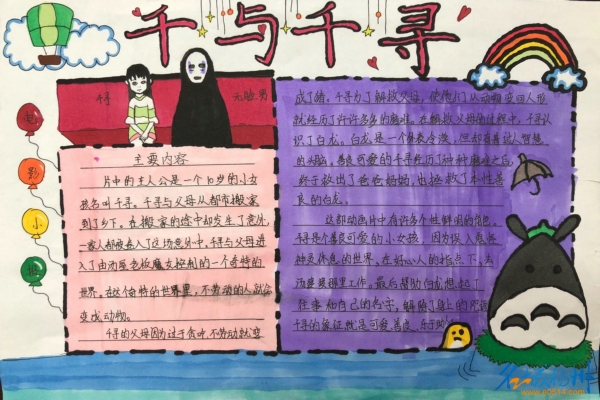 千与千寻
千寻
无脸男
电
影
小
报
主要内容
片中的主人公是一个10岁的小女
孩名叫千寻。千寻与父母从都市搬家
到了乡下。在搬家的途中却发生了意外,
一家人都被卷入了这场意外中,千寻与父母进
入了由汤屋老板魔女控制的一个奇特的
世界,在这个奇特的世界里,不劳动的人就会
变成动物。
千寻的父母因为过于贪吃,不劳动就变
成了猪。千寻为了解救父母,使他们从动物变回人形
就经历了许许多多的磨难。在解救父母的过程中,千寻认
识了白龙。白龙是一个外表冷漠,但却有着过人智慧
的头脑。善良可爱的千寻经历了种种磨难之后,
终于救出了爸爸妈妈,也拯救了本性善
良的白龙。
这部动画片有许多个性鲜明的角色。
千寻是个善良可爱的小女孩,因为误入鬼怪
神灵休息的世界,在好心人的指点下,去
汤婆婆那里工作。最后帮助白龙想起了
往事和自己的名字,解除了身上的咒语
千寻的象征就是可爱、善良、乐于助